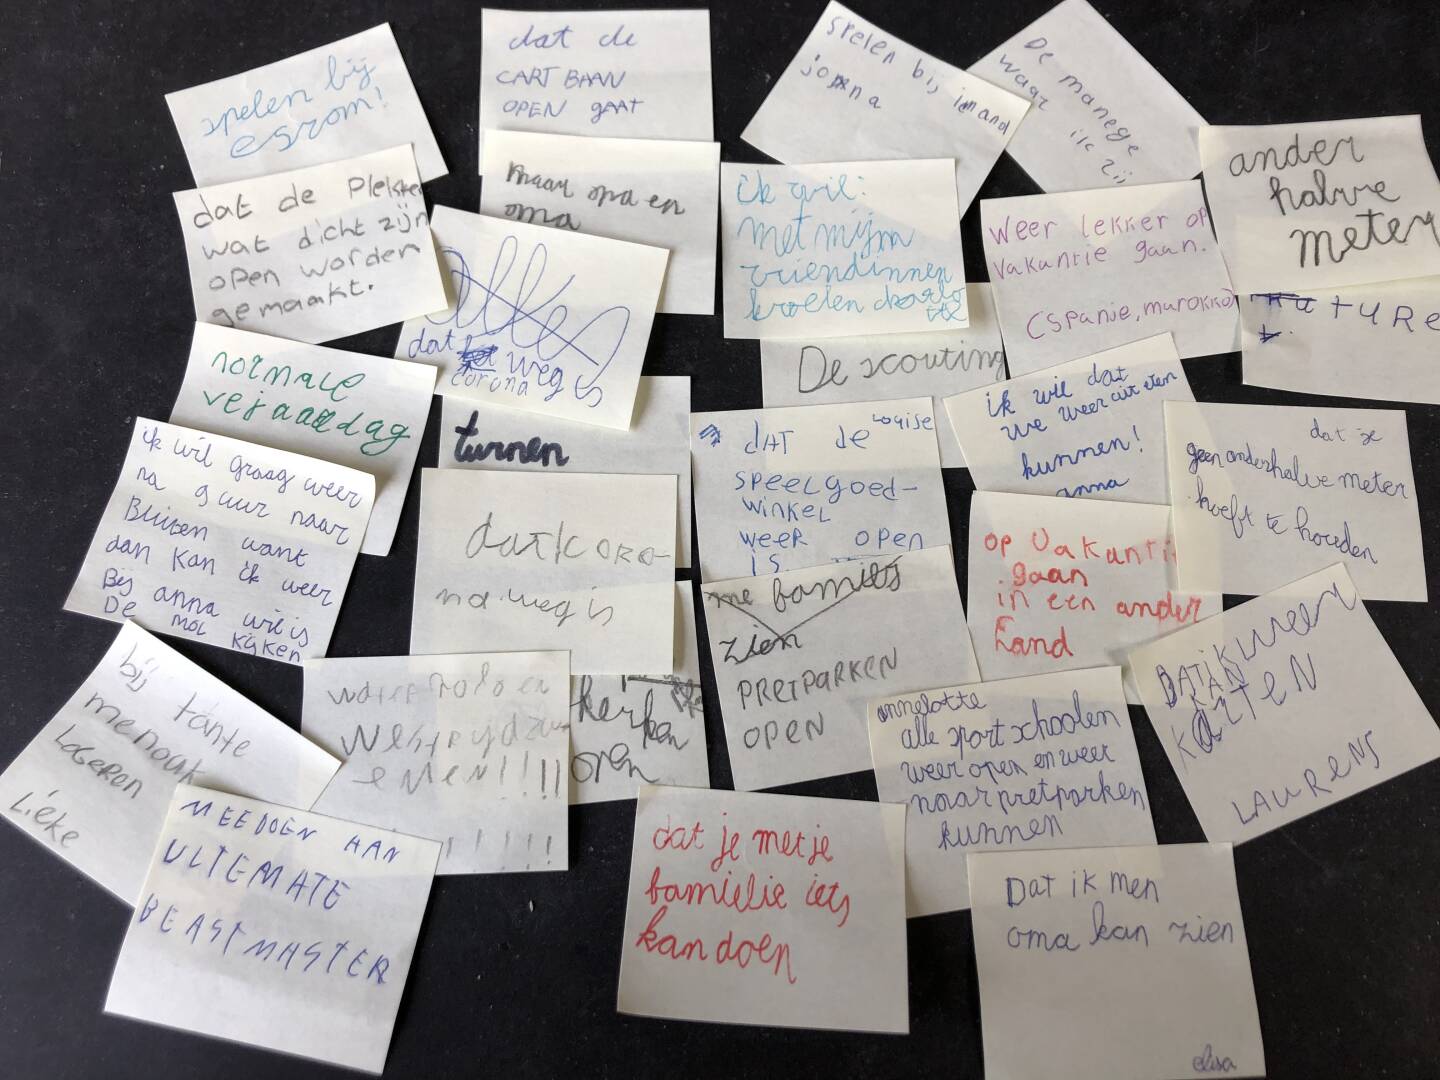 spelen bij
esrom!
dat de
CART BAAN
OPEN gAAT
spelen bij iemand
jorna
De manege
waar ik zij
ander
halve
meter
dat de Plekken
wat dicht zijn
open worden
gemaakt.
maar opa en
oma
ik wil:
met mijn
vriendinnen
kroelen charlo
tte
Weer lekker op
vakantie gaan.
(Spanie, marokko)
Alles
dat weg is
corona
De scouting
normale
verjaardag
turnen
DAT de Louise
speelgoed-
winkel
weer open
is
ik wil dat
we weer uit eten
kunnen!
anna
dat je
geen anderhalve meter
hoeft te houden
ik wil graag weer
na 9 uur naar
Buiten want
dan kan ik weer
Bij anna wil is
De mol kijken
dat coro-
na weg is
me familij
zien
PRETPARKEN
OPEN
op vakantie
gaan
in een ander
Land
DAT IK WEER
KAN
KARTEN
LAURENS
bij tante
Logeren
Lieke
waterpolo en
emen!!!!
!!!!!
kerken
open
annelotte
alle sportschoolen
weer open en weer
naar pretparken
kunnen
MEEDOEN AAN
ULTEMATE
BEASTMASTER
dat je met je
familie iets
kan doen
Dat ik men
oma kan zien
elisa